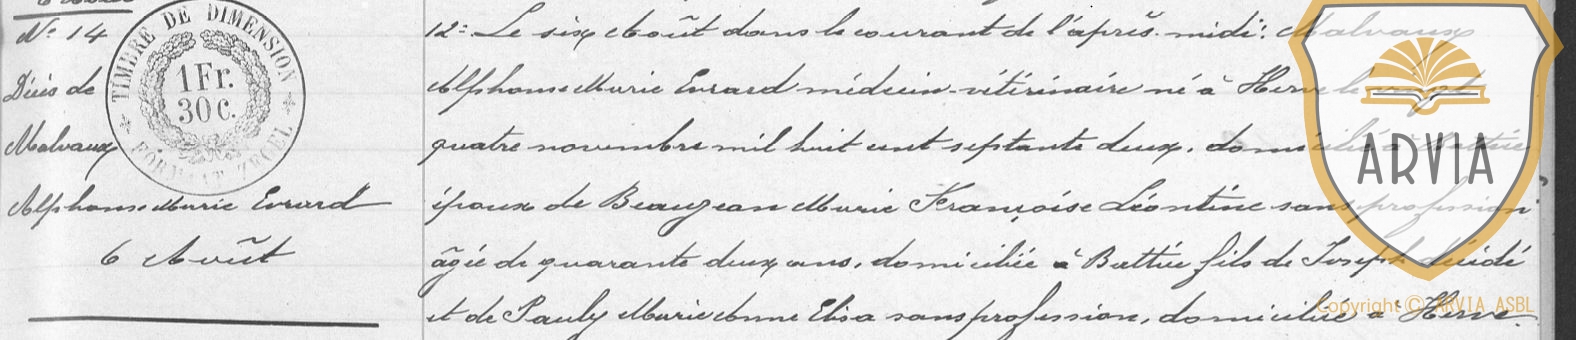 N° 14
Décès de
Malvaux
Alphonse Marie Evrard
6 Août
TIMBRE DE DIMENSION
1 Fr.
30 C.
FORMAAT ZEGEL
12° Le six Août dans le courant de l'après-midi: Malvaux
Alphonse Marie Evrard médecin-vétérinaire né à Herve le vingt
quatre novembre mil huit cent septante deux, domicilié à Battice
époux de Beaujean Marie Françoise Léontine sans profession
âgée de quarante deux ans, domiciliée à Battice fils de Joseph décédé
et de Pauly Marie Anne Elisa sans profession, domiciliée à Herve.
ARVIA
Copyright © ARVIA ASBL